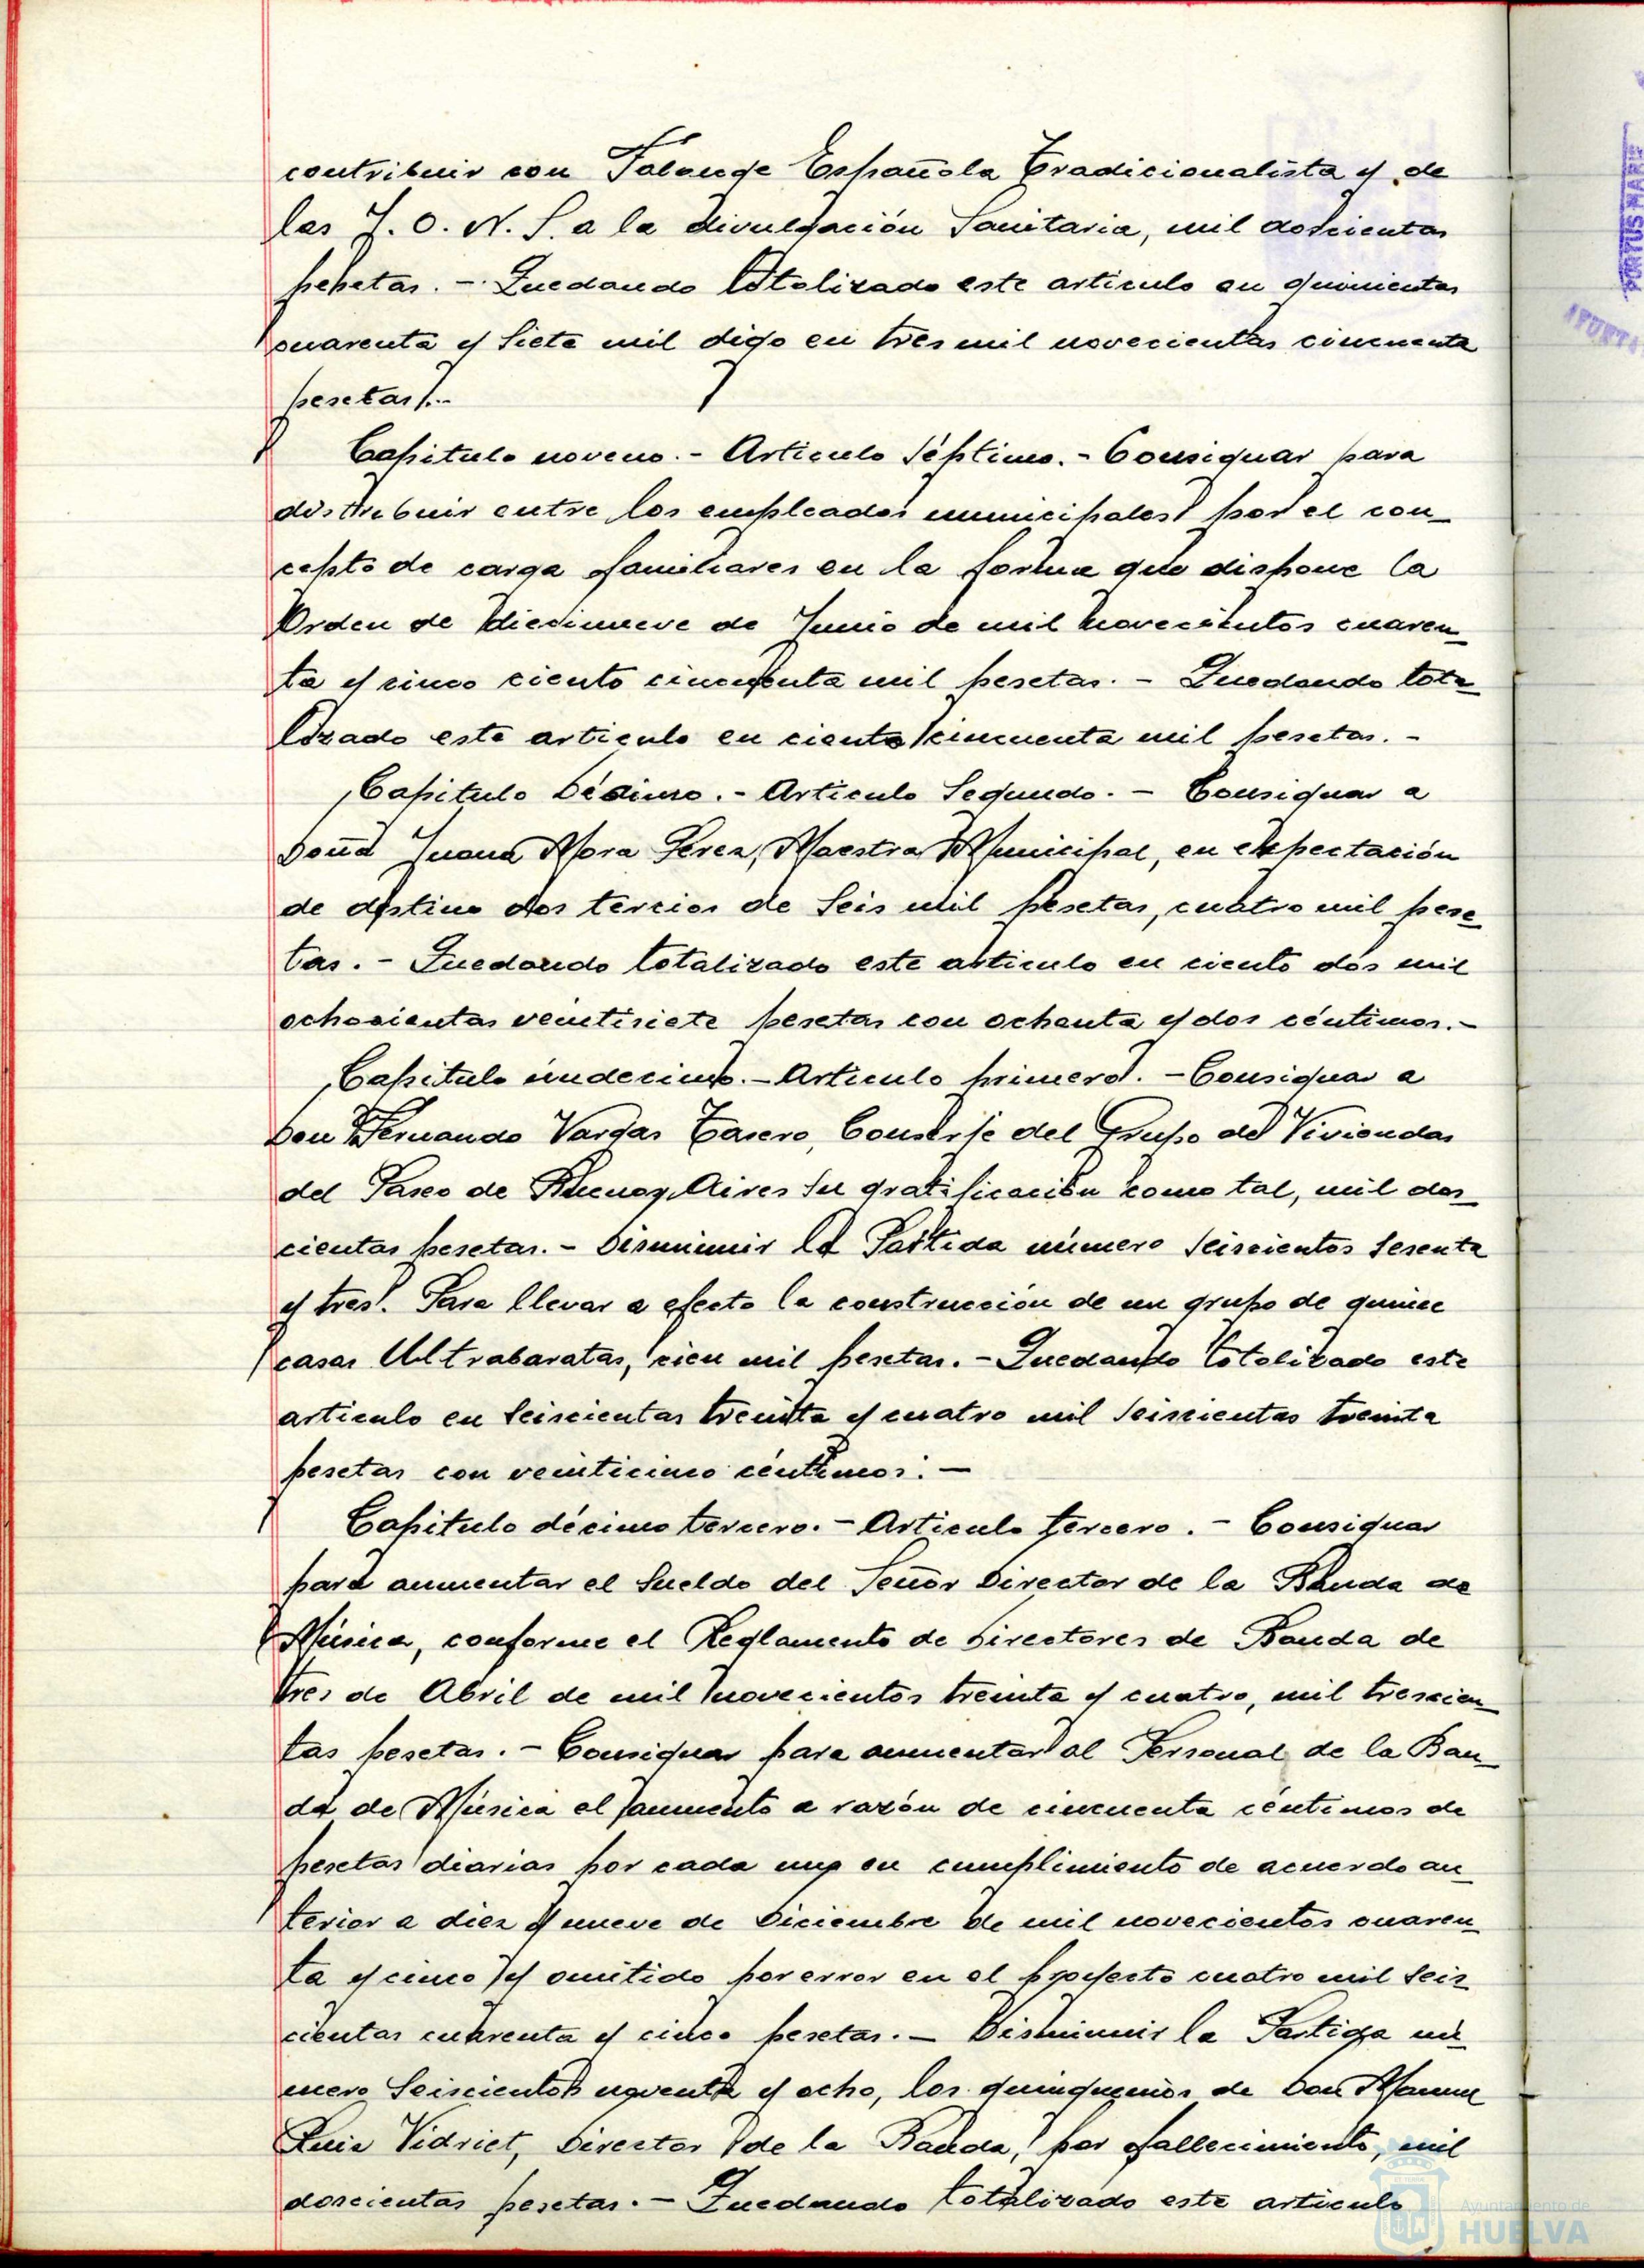 contribuir con Falange Española Tradicionalista y de
las J. O. N. S. a la divulgación Sanitaria, mil doscientas
pesetas. - Quedando totalizado este articulo en quinientas
cuarenta y siete mil digo en tres mil novecientas cincuenta
pesetas.-
Capitulo noveno. - Articulo séptimo. - Consignar para
distribuir entre los empleados municipales por el con_
cepto de carga familiares en la forma que dispone la
Orden de diecinueve de Junio de mil novecientos cuaren_
ta y cinco ciento cincuenta mil pesetas. - Quedando tota_
lizado este articulo en ciento cincuenta mil pesetas. -
Capitulo Décimo. - Articulo Segundo. - Consignar a
Doña Juana Mora Perez, Maestra Municipal, en expectación
de destino dos tercios de Seis mil pesetas, cuatro mil pese_
tas. - Quedando totalizado este articulo en ciento dos mil
ochocientas veintisiete pesetas con ochenta y dos céntimos. -
Capitulo úndecimo. - Articulo primero. - Consignar a
Don Fernando Vargas Casero, Conserje del Grupo de Viviendas
del Paseo de Buenos Aires su gratificación como tal, mil dos_
cientas pesetas. - Disminuir la Partida número seiscientos sesenta
y tres. Para llevar a efecto la construcción de un grupo de quince
casas Ultrabaratas, cien mil pesetas. - Quedando totalizado este
articulo en seiscientas treinta y cuatro mil seiscientas treinta
pesetas con veinticinco céntimos. -
Capitulo décimo tercero. - Articulo tercero. - Consignar
para aumentar el Sueldo del Señor Director de la Banda de
Música, conforme el Reglamento de Directores de Banda de
tres de Abril de mil novecientos treinta y cuatro, mil trescien_
tas pesetas. - Consignar para aumentar al Personal de la Ban_
da de Música el aumento a razón de cincuenta céntimos de
pesetas diarias por cada uno en cumplimiento de acuerdo an_
terior a diez y nueve de Diciembre de mil novecientos cuaren_
ta y cinco y omitido por error en el proyecto cuatro mil seis_
cientas cuarenta y cinco pesetas. - Disminuir la Partida nú_
mero Seiscientos noventa y ocho, los quinquenios de Don Manuel
Ruiz Vidriet, Director de la Banda, por fallecimiento, mil
doscientas pesetas. - Quedando totalizado este articulo
Ayuntamiento de
HUELVA